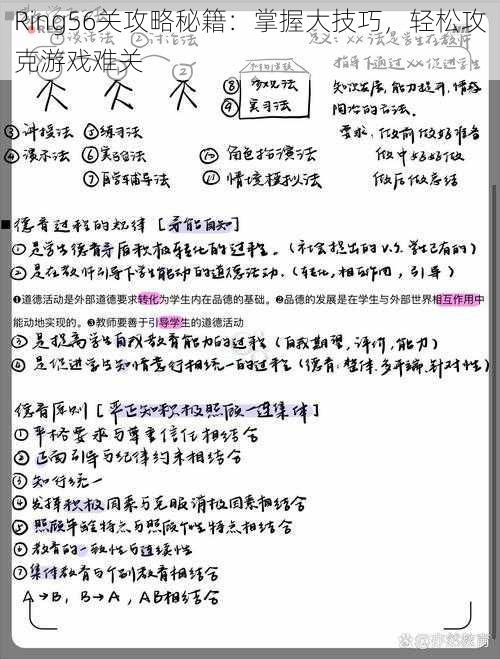 Ring56关攻略秘籍：掌握大技巧，轻松攻
克游戏难关
①谈话法 ②讨论法
定义：XX法是学生在教师
指导下通过XX促进学生
⑧参观法
⑨实习法
知识发展，能力提升，情感
陶冶的方法。
③讲授法 ⑤练习法
要求：做前做好准备
④演示法 ⑥实验法 ⑩角色扮演法
做中好好做
⑦自学辅导法 ⑪情境模拟法
做后做总结
德育过程的规律[矛能自知]
①是学生德育矛盾积极转化的过程。(社会提出的 V.S. 学生已有的)
②是在教师引导下学生能动的道德活动。(转化，相互作用，引导)
❶道德活动是外部道德要求转化为学生内在品德的基础。❷品德的发展是在学生与外部世界相互作用中
能动地实现的。❸教师要善于引导学生的道德活动
③是提高学生自我教育能力的过程(自我期望，评价，能力)
④是促进学生知情意行相统一的过程(德育：整体，多开端，针对性)
德育原则[严正知积极照顾一连集体]
①严格要求与尊重信任相结合
②正面引导与纪律约束相结合
③知行统一
④发挥积极因素与克服消极因素相结合
⑤照顾年龄特点与照顾个性特点相结合
⑥教育的一致性与连续性
⑦集体教育与个别教育相结合
A→B，B→A，AB相结合